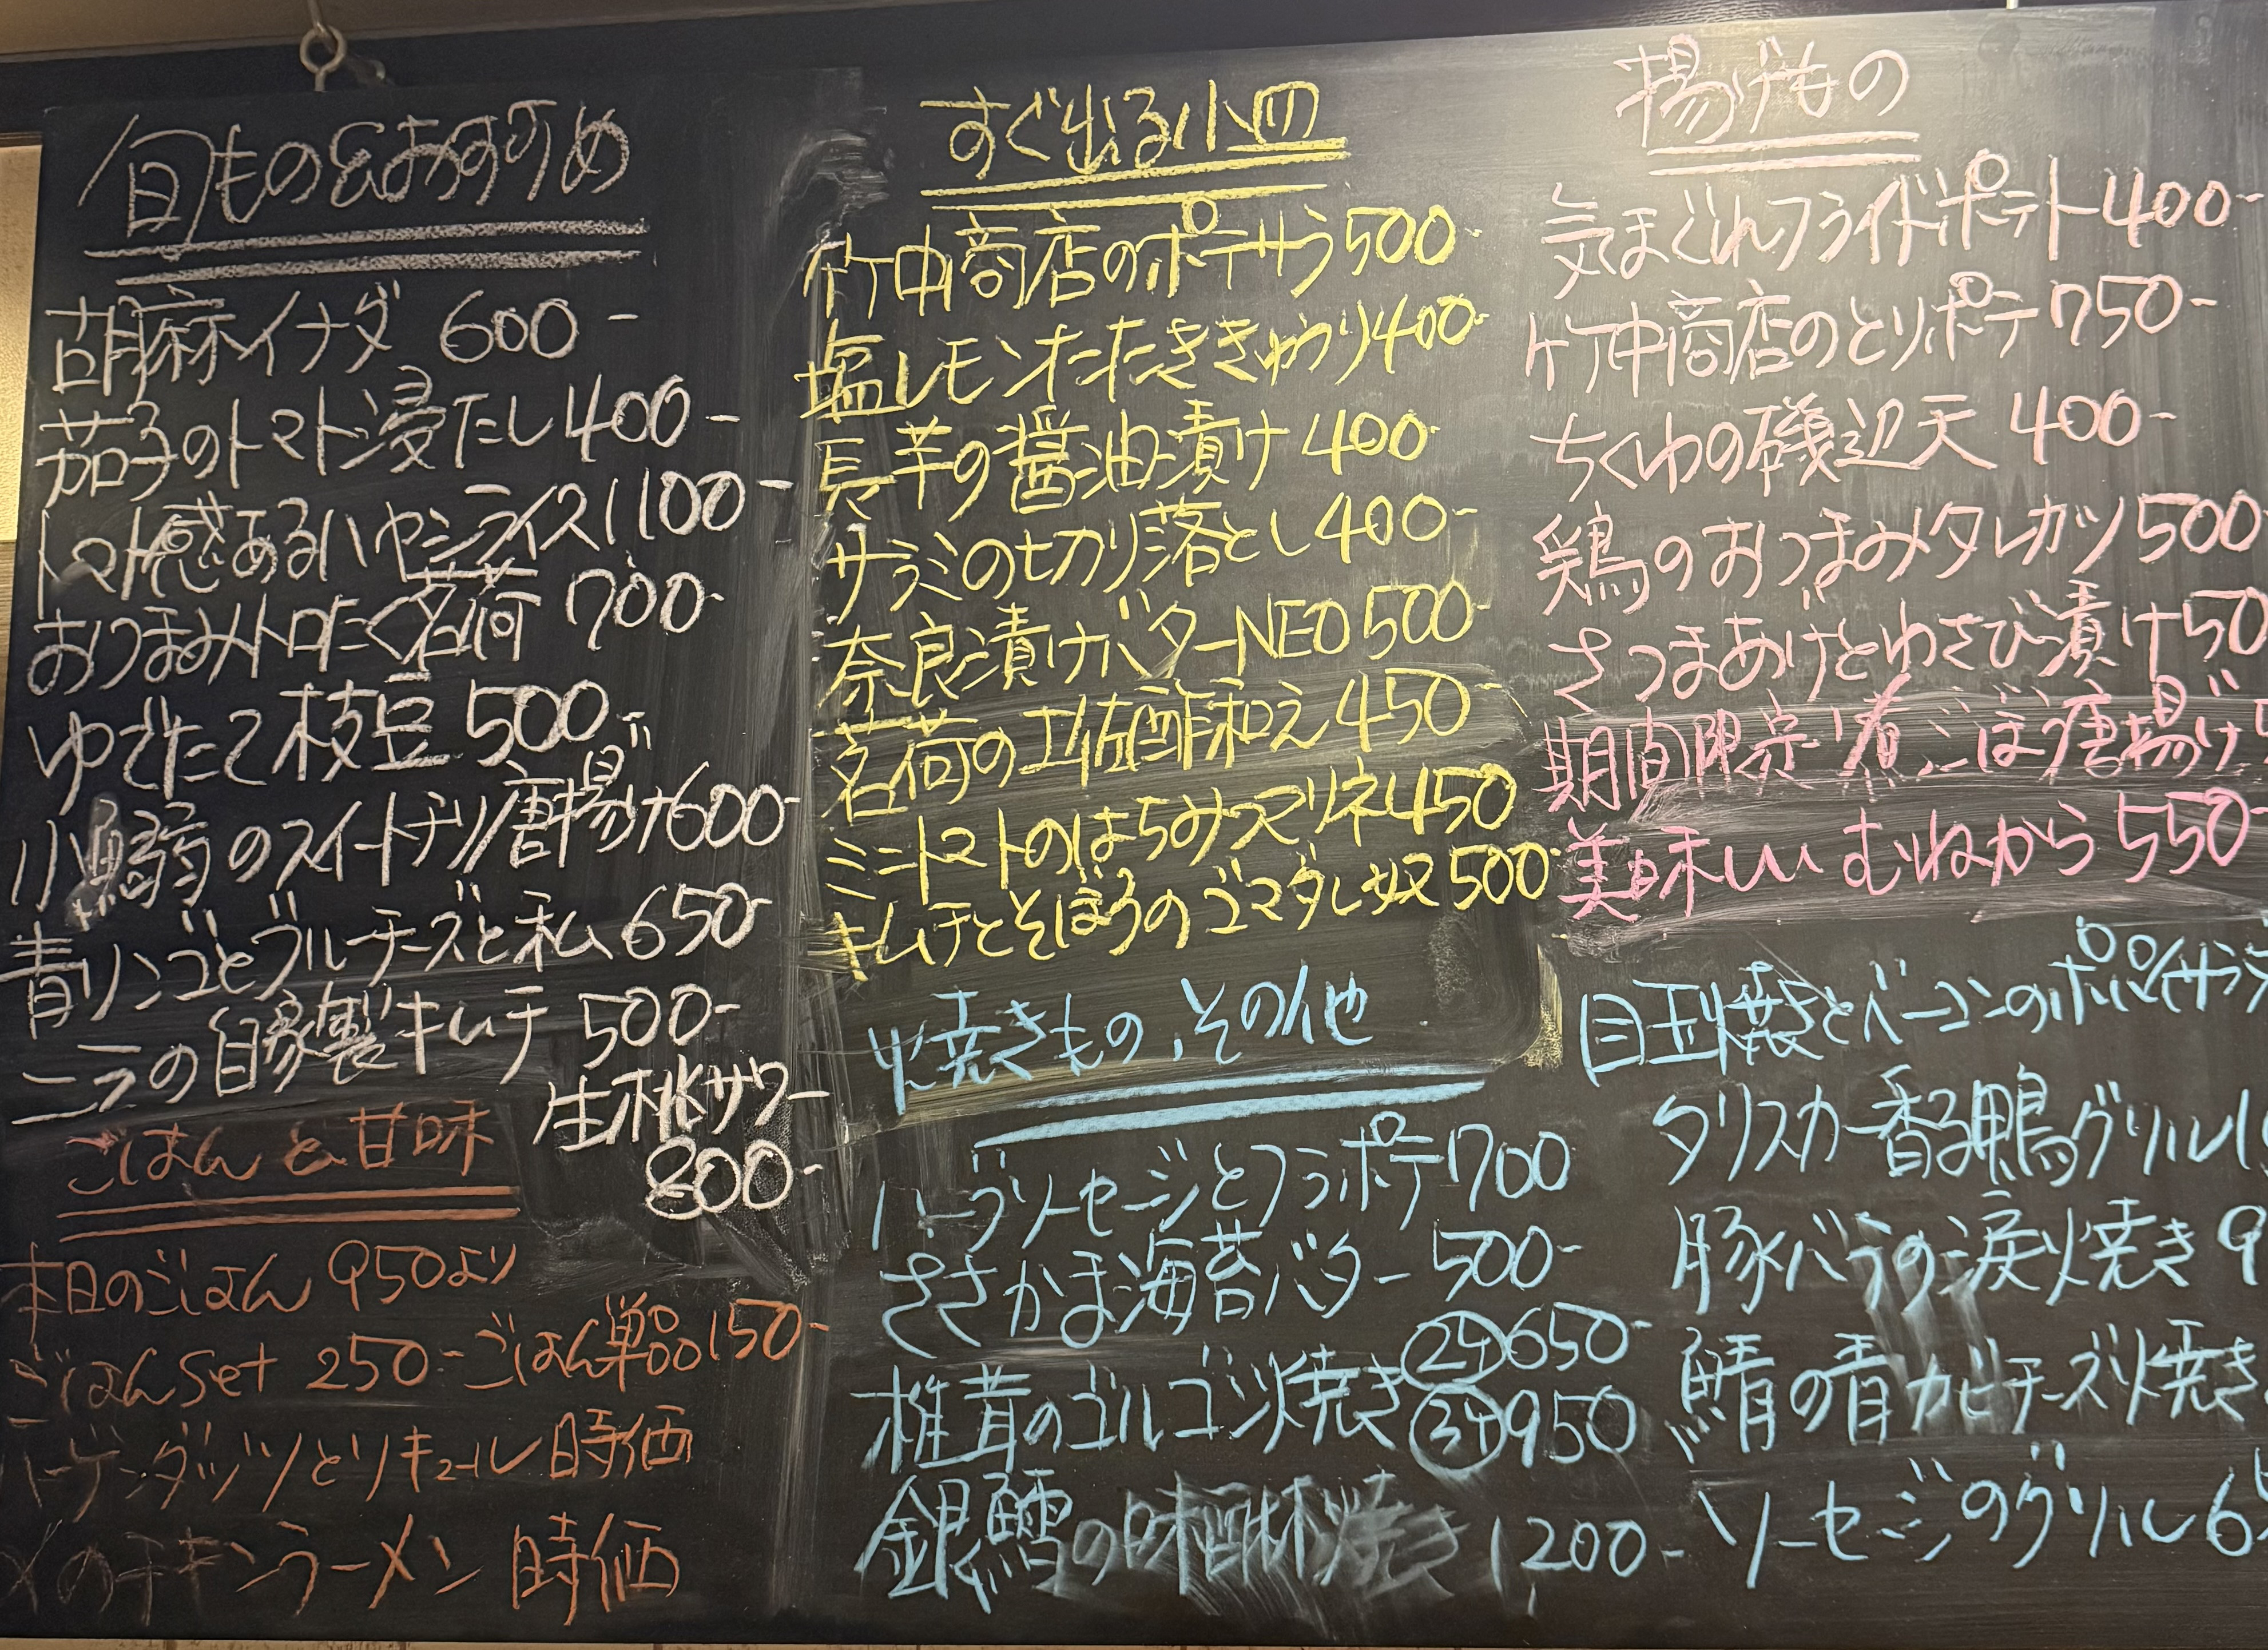 旬もの&おすすめ
胡麻イナダ 600-
茄子のトマト浸たし 400-
トマト感あるハヤシライス 1100-
おつまみトロたく茗荷 700-
ゆでたて枝豆 500-
小鰯のスイートチリ唐揚げ 600-
青リンゴとブルーチーズと私 650-
ニラの自家製キムチ 500-
生桃サワー
800-
ごはんと甘味
本日のごはん 950より
ごはんset 250- ごはん単品 150-
ハーゲンダッツとリキュール 時価
〆のチキンラーメン 時価
すぐ出る小皿
竹中商店のポテサラ 500-
塩レモンたたききゅうり 400-
長芋の醤油漬け 400-
サラミの切り落とし 400-
奈良漬けバターNEO 500-
茗荷の土佐酢和え 450-
ミニトマトのはちみつマリネ 450
キムチとそぼろのゴマダレ奴 500-
焼きもの、その他
ハーブソーセージとフラポテ 700
ささかま海苔バター 500-
椎茸のゴルゴンゾ焼き ②ケ 650-
③ケ 950
銀鱈の味醂焼き 1200-
揚げもの
気まぐれフライドポテト 400-
竹中商店のとりポテ 750-
ちくわの磯辺天 400-
鶏のおつまみタレカツ 500
さつまあげとわさび漬け 50
期間限定 煮ごぼう唐揚げ
美味しいむねから 550-
目玉焼きとベーコンのポパイサラ
タリスカー香る鴨グリル
豚バラの炭焼き 9
鯖の青カビチーズ焼き
ソーセージのグリル 6